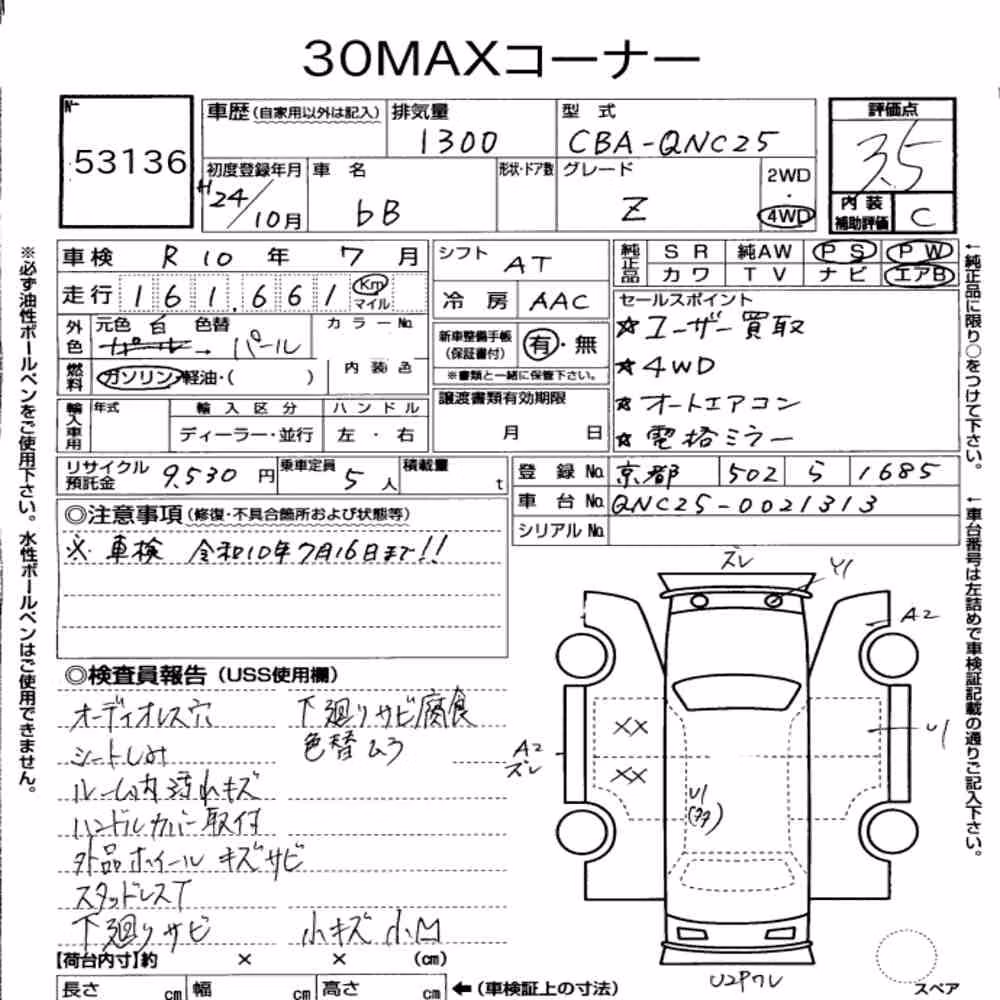 30MAXコーナー
No. 53136
車歴(自家用以外は記入) 排気量 1300 型式 CBA-QNC25 評価点 3.5
初度登録年月 H24/10月 車名 bB 形状・ドア数 グレード Z 2WD・4WD 内装補助評価 C
車検 R10年7月 シフト AT 純正品 SR 純AW PS PW
カワ TV ナビ エアB
走行 161,661 Km マイル 冷房 AAC
外色 元色 白 色替 パール カラーNo. 新車整備手帳(保証書付) 有・無
※書類と一緒に保管下さい。
燃料 ガソリン・軽油・( ) 内装色
輸入車用 年式 輸入区分 ハンドル 譲渡書類有効期限
ディーラー・並行 左・右 月 日
セールスポイント
☆ユーザー買取
☆4WD
☆オートエアコン
☆電格ミラー
リサイクル預託金 9,530円 乗車定員 5人 積載量 t
登録No. 京都 502 ら 1685
車台No. QNC25-0021313
シリアルNo.
◎注意事項(修復・不具合箇所および状態等)
※車検 令和10年7月16日まで!!
◎検査員報告(USS使用欄)
オーディオレス穴 下廻りサビ腐食
シートしみ 色替ムラ
ルーム内汚れキズ
ハンドルカバー取付
外品ホイール キズサビ
スタッドレスT
下廻りサビ 小キズ 小凹
ズレ
Y1
A2
XX
U1
A2
ズレ
XX
U1
U2Pワレ
スペア
【荷台内寸】約 × × (cm)
長さ cm 幅 cm 高さ cm ←(車検証上の寸法)
※必ず油性ボールペンをご使用下さい。水性ボールペンはご使用できません。
←純正品に限り○をつけて下さい。
←車台番号は左詰めで車検証記載の通りご記入下さい。